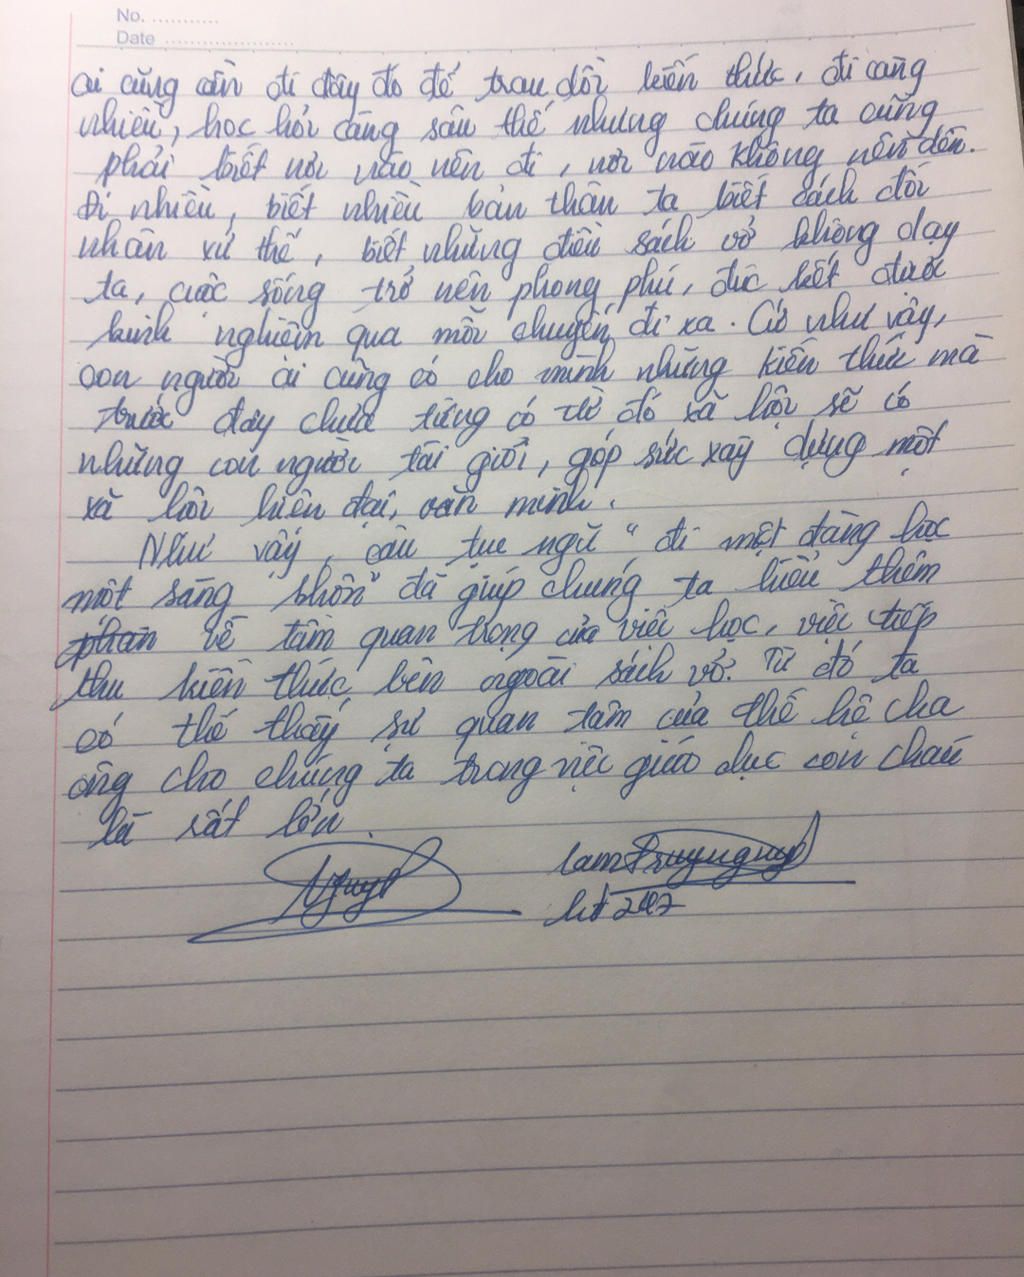 No. ............
Date ......................
ai cũng cần đi đây đó để trau dồi kiến thức, đi càng
nhiều, học hỏi càng sâu thế nhưng chúng ta cũng
phải biết nơi nào nên đi, nơi nào không nên đến.
Đi nhiều, biết nhiều bản thân ta biết cách đối
nhân xử thế, biết những điều sách vở không dạy
ta, cuộc sống trở nên phong phú, đúc kết được
kinh nghiệm qua mỗi chuyến đi xa. Cứ như vậy,
con người ai cũng có cho mình những kiến thức mà
trước đây chưa từng có từ đó xã hội sẽ có
những con người tài giỏi, góp sức xây dựng một
xã hội hiện đại, văn minh.
Như vậy, câu tục ngữ "đi một đàng học
một sàng khôn" đã giúp chúng ta hiểu thêm
về tầm quan trọng của việc học, việc tiếp
thu kiến thức bên ngoài sách vở. Từ đó ta
có thể thấy sự quan tâm của thế hệ cha
ông cho chúng ta trong việc giáo dục con cháu
là rất lớn.